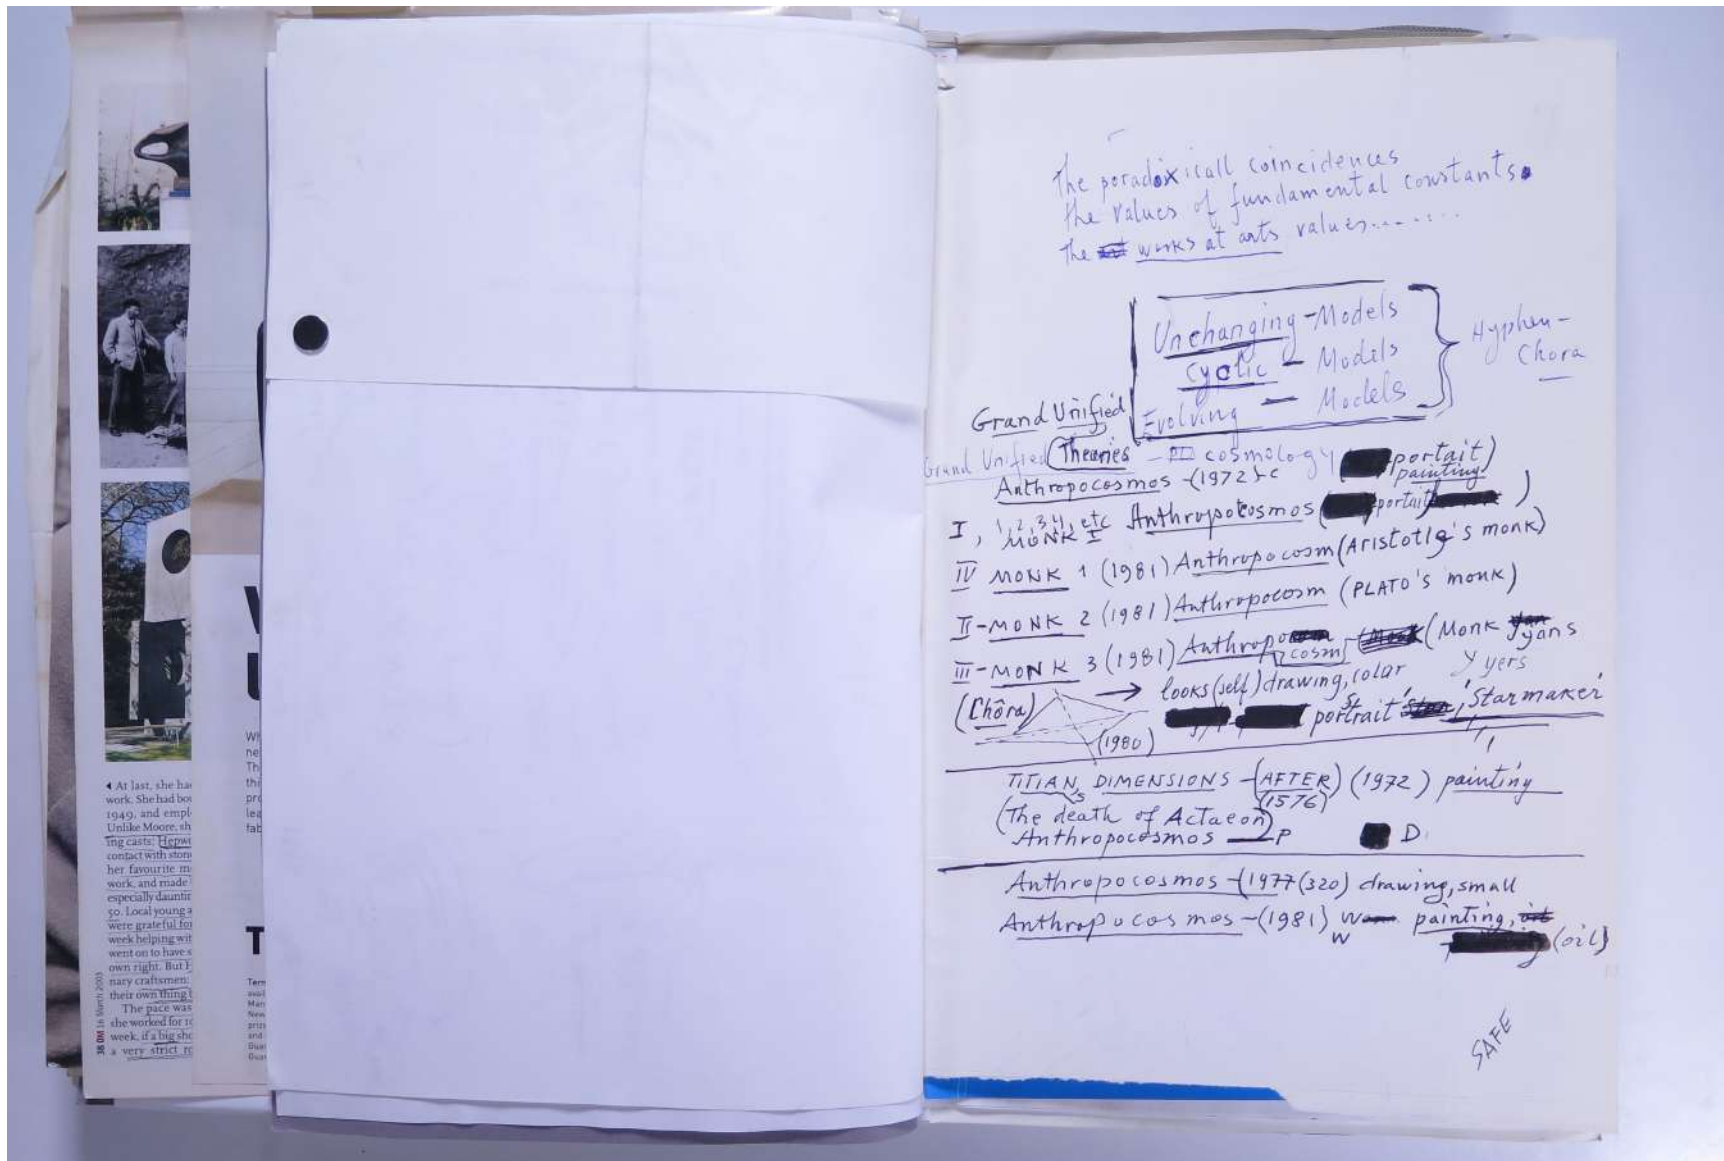 ◀ At last, she ha
work. She had bo
1949, and empl
Unlike Moore, sh
ing casts: Hepw
contact with ston
her favourite m
work, and made
especially dauntin
50. Local young a
were grateful for
week helping wit
went on to have s
own right. But H
nary craftsmen:
their own thing
The pace was
she worked for
week, if a big sho
a very strict ro
38 OM 16 March 2003
Wh
ne
Th
thi
pro
lea
fab
T
Term
avai
Man
New
priz
and
Guar
Guar
The poradoxicall coincidences
the values of fundamental constants.
The works at arts values........
Unchanging - Models
Cyclic - Models
Evolving - Models
Hyphen -
Chora
Grand Unified
Grand Unified Theories - cosmology portait)
Anthropocosmos - (1972) - c painting
I, 1, 2, 3, 4, etc Anthropocosmos ( portait )
MONK I
IV MONK 1 (1981) Anthropocosm (Aristotle's monk)
II - MONK 2 (1981) Anthropocosm (PLATO's monk)
III - MONK 3 (1981) Anthropocosm (Monk yans
y yers
(Chôra) → looks (self) drawing, colar
portrait 'Starmaker'
(1980)
TITIAN,s DIMENSIONS - (AFTER) (1972) painting
(1576)
(The death of Actaeon)
Anthropocosmos - P D.
Anthropocosmos - (1977 (320) drawing, small
Anthropocosmos - (1981) W painting,
W (oil)
SAFE